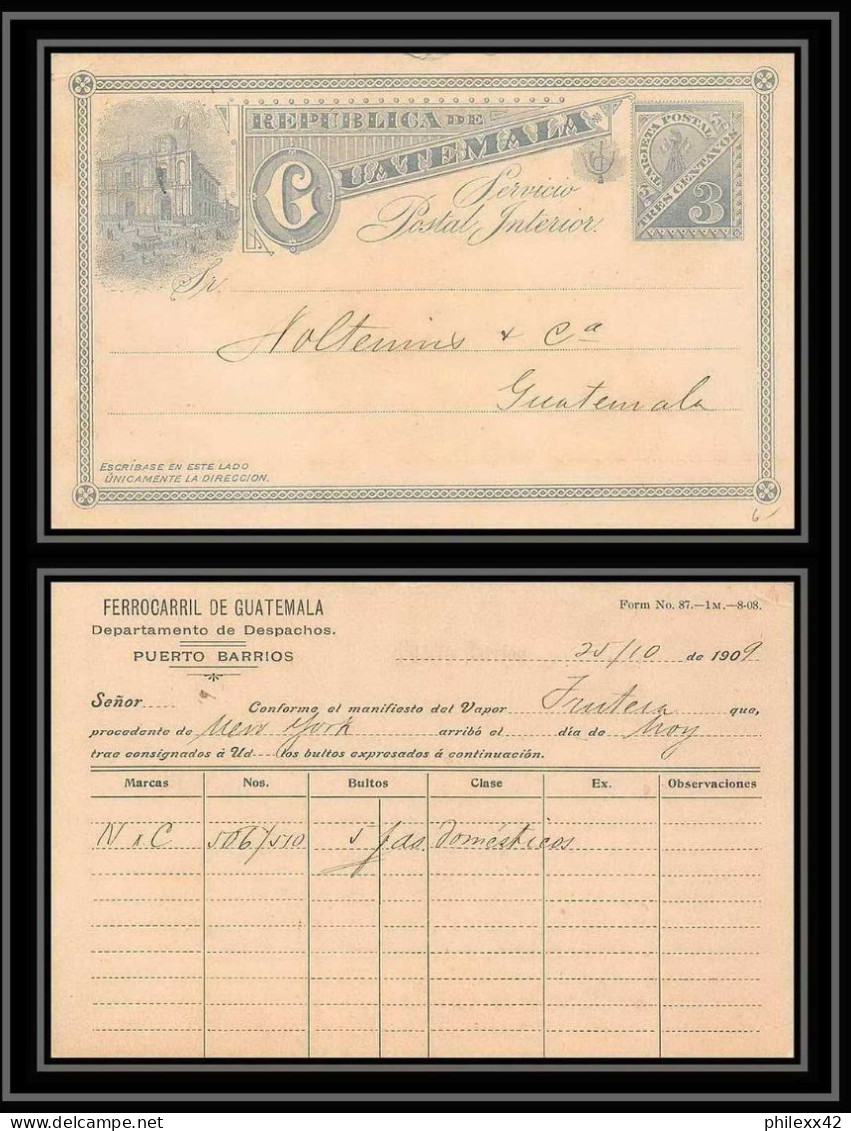 REPUBLICA DE
GUATEMALA
Servicio
Postal Interior.
TARJETA POSTAL
TRES CENTAVOS
3
Sr.
Noltenius & Ca
Guatemala
ESCRÍBASE EN ESTE LADO
ÚNICAMENTE LA DIRECCION.
6
FERROCARRIL DE GUATEMALA
Form No. 87.—1M.—8-08.
Departamento de Despachos.
PUERTO BARRIOS
25/10 de 1909
Señor Conforme el manifiesto del Vapor Frutera que,
procedente de New York arribó el día de hoy
trae consignados á Ud los bultos expresados á continuación.
Marcas Nos. Bultos Clase Ex. Observaciones
N & C 506/510 5 fas domésticos
www.delcampe.net
philexx42